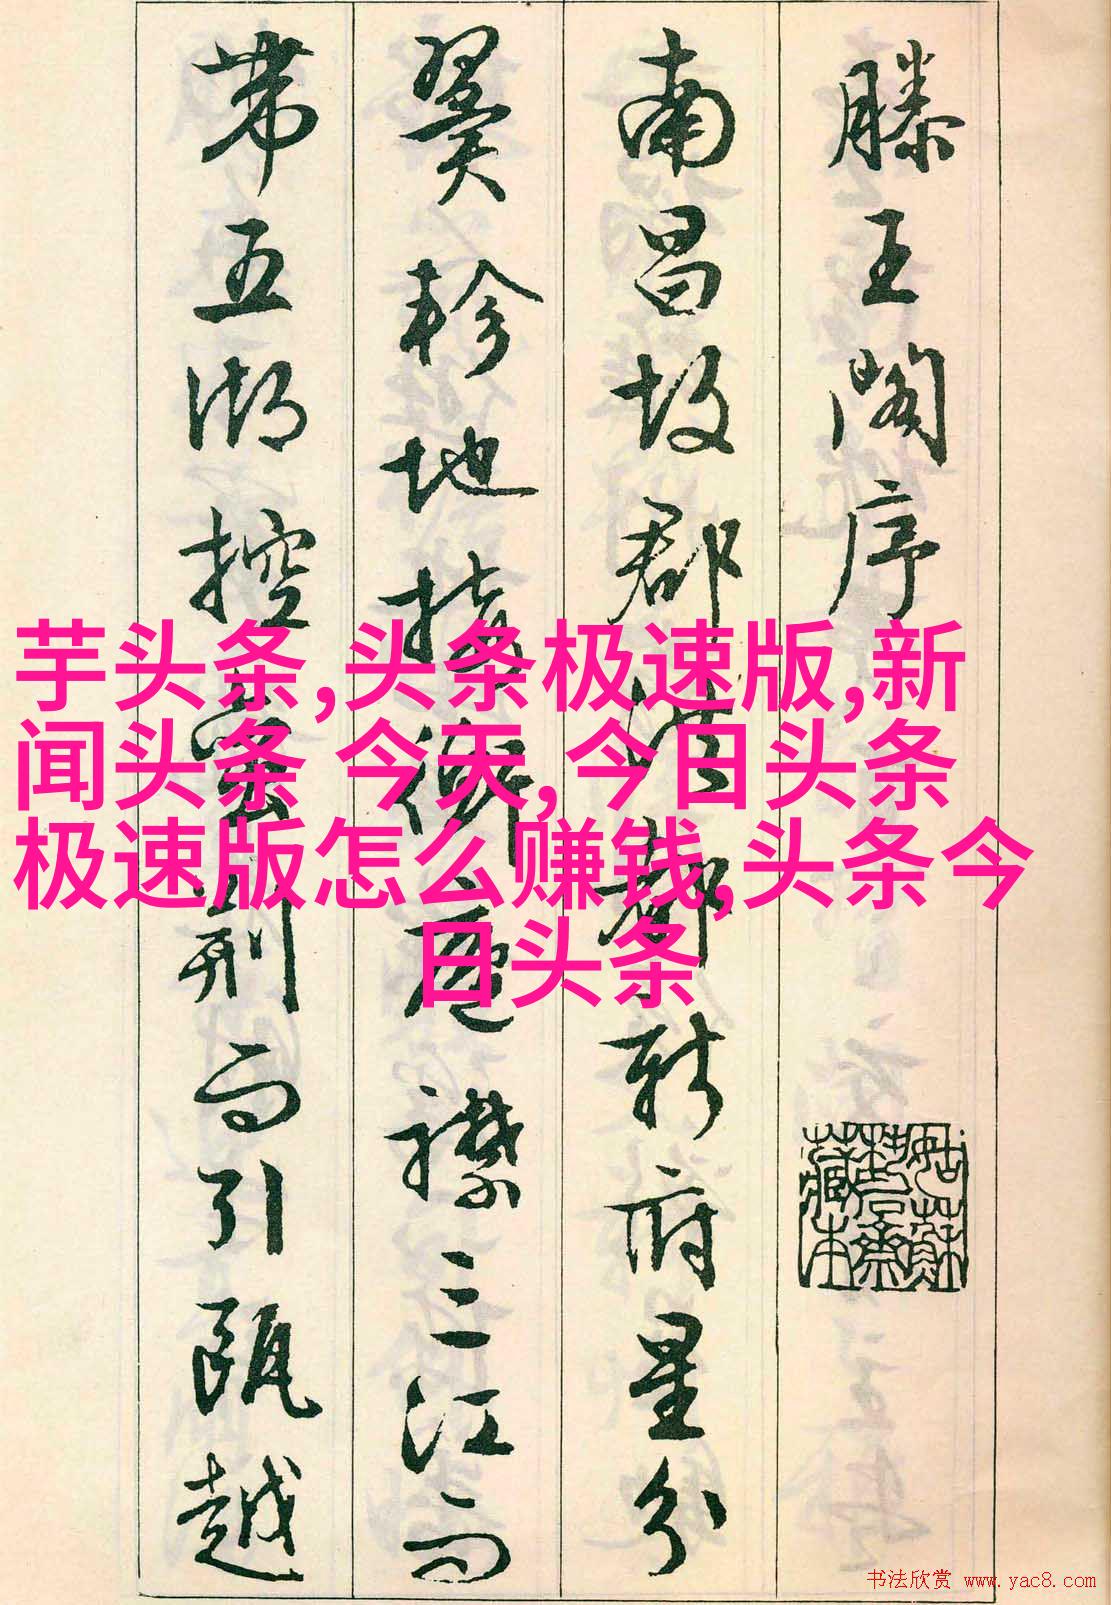 滕王閣序
南昌故郡洪都新府星分
翼軫地接衡廬襟三江而
帶五湖控蠻荊而引甌越
芋头条,头条极速版,新
闻头条 今天,今日头条
极速版怎么赚钱,头条今
日头条
姑蘇
藏本
书法欣赏 www.yac8.com